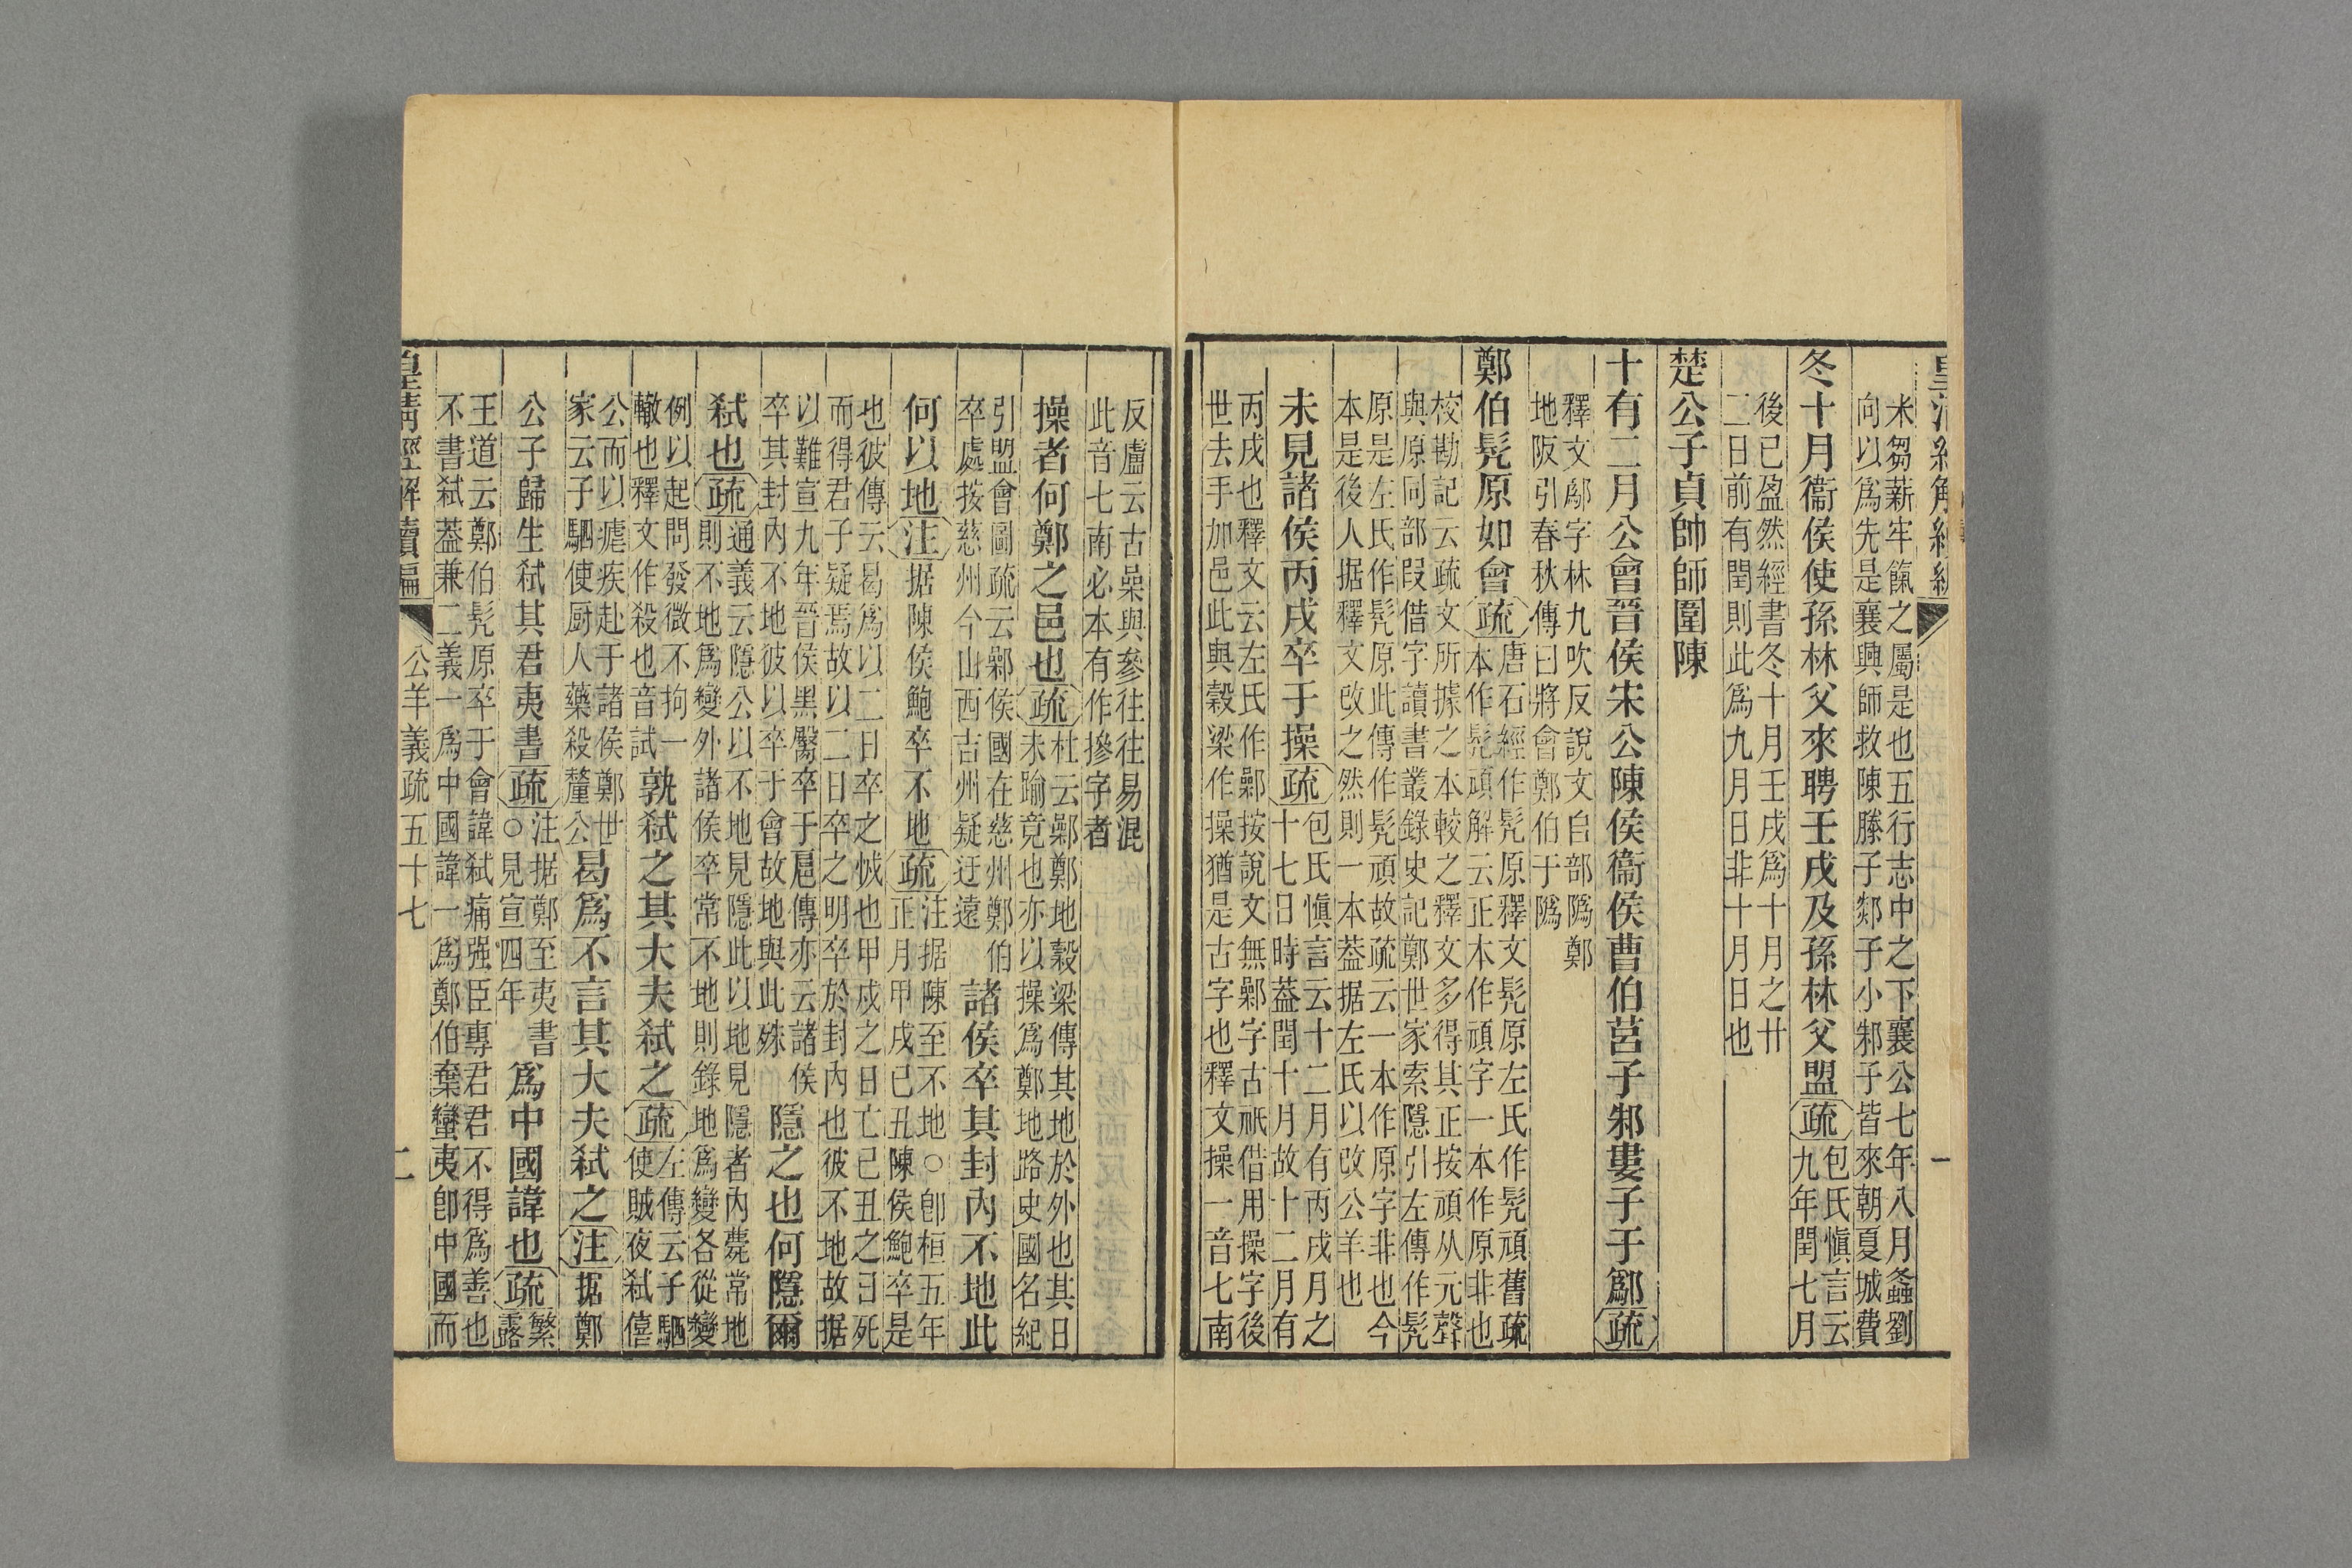 皇清經解續編
一
米芻薪牢餼之屬是也五行志中之下襄公七年八月螽劉
向以爲先是襄興師救陳滕子郯子小邾子皆來朝夏城費
冬十月衞侯使孫林父來聘壬戌及孫林父盟疏包氏愼言云
九年閏七月
後已盈然經書冬十月壬戌爲十月之廿
二日前有閏則此爲九月日非十月日也
楚公子貞帥師圍陳
十有二月公會晉侯宋公陳侯衞侯曹伯莒子邾婁子于鄬疏
釋文鄬字林九吹反說文𨸏部隖鄭
地阪引春秋傳曰將會鄭伯于隖
鄭伯髡原如會疏唐石經作髡原釋文髡原左氏作髡頑舊疏
本作髡頑解云正本作頑字一本作原非也
校勘記云疏文所據之本較之釋文多得其正按頑从元聲
與原同部叚借字讀書叢錄史記鄭世家索隱引左傳作髡
原是左氏作髡原此傳作髡頑故疏云一本作原字非也今
本是後人据釋文改之然則一本葢据左氏以改公羊也
未見諸侯丙戌卒于操疏包氏愼言云十二月有丙戌月之
十七日時葢閏十月故十二月有
丙戌也釋文云左氏作鄵按說文無鄵字古祇借用操字後
世去手加邑此與穀梁作操猶是古字也釋文操一音七南
反盧云古喿與參往往易混
此音七南必本有作摻字者
操者何鄭之邑也疏杜云鄵鄭地穀梁傳其地於外也其日
未踰竟也亦以操爲鄭地路史國名紀
引盟會圖疏云鄵侯國在慈州鄭伯
卒處按慈州今山西吉州疑迂遠
諸侯卒其封內不地此
何以地注据陳侯鮑卒不地疏注据陳至不地○卽桓五年
正月甲戌己丑陳侯鮑卒是
也彼傳云曷爲以二日卒之怴也甲戌之日亡己丑之日死
而得君子疑焉故以二日卒之明卒於封內也彼不地故据
以難宣九年晉侯黑臀卒于扈傳亦云諸侯
卒其封內不地彼以卒于會故地與此殊
隱之也何隱爾
弒也疏通義云隱公以不地見隱此以地見隱者內薨常地
則不地爲變外諸侯卒常不地則錄地爲變各從變
例以起問發微不拘一
轍也釋文作殺也音試
孰弒之其大夫弒之疏左傳云子駟
使賊夜弒僖
公而以瘧疾赴于諸侯鄭世
家云子駟使厨人藥殺釐公
曷爲不言其大夫弒之注据鄭
公子歸生弒其君夷書疏注据鄭至夷書
○見宣四年
爲中國諱也疏繁
露
王道云鄭伯髡原卒于會諱弒痛强臣專君君不得爲善也
不書弒葢兼二義一爲中國諱一爲鄭伯棄蠻夷卽中國而
皇淸經解續編
公羊義疏五十七
二